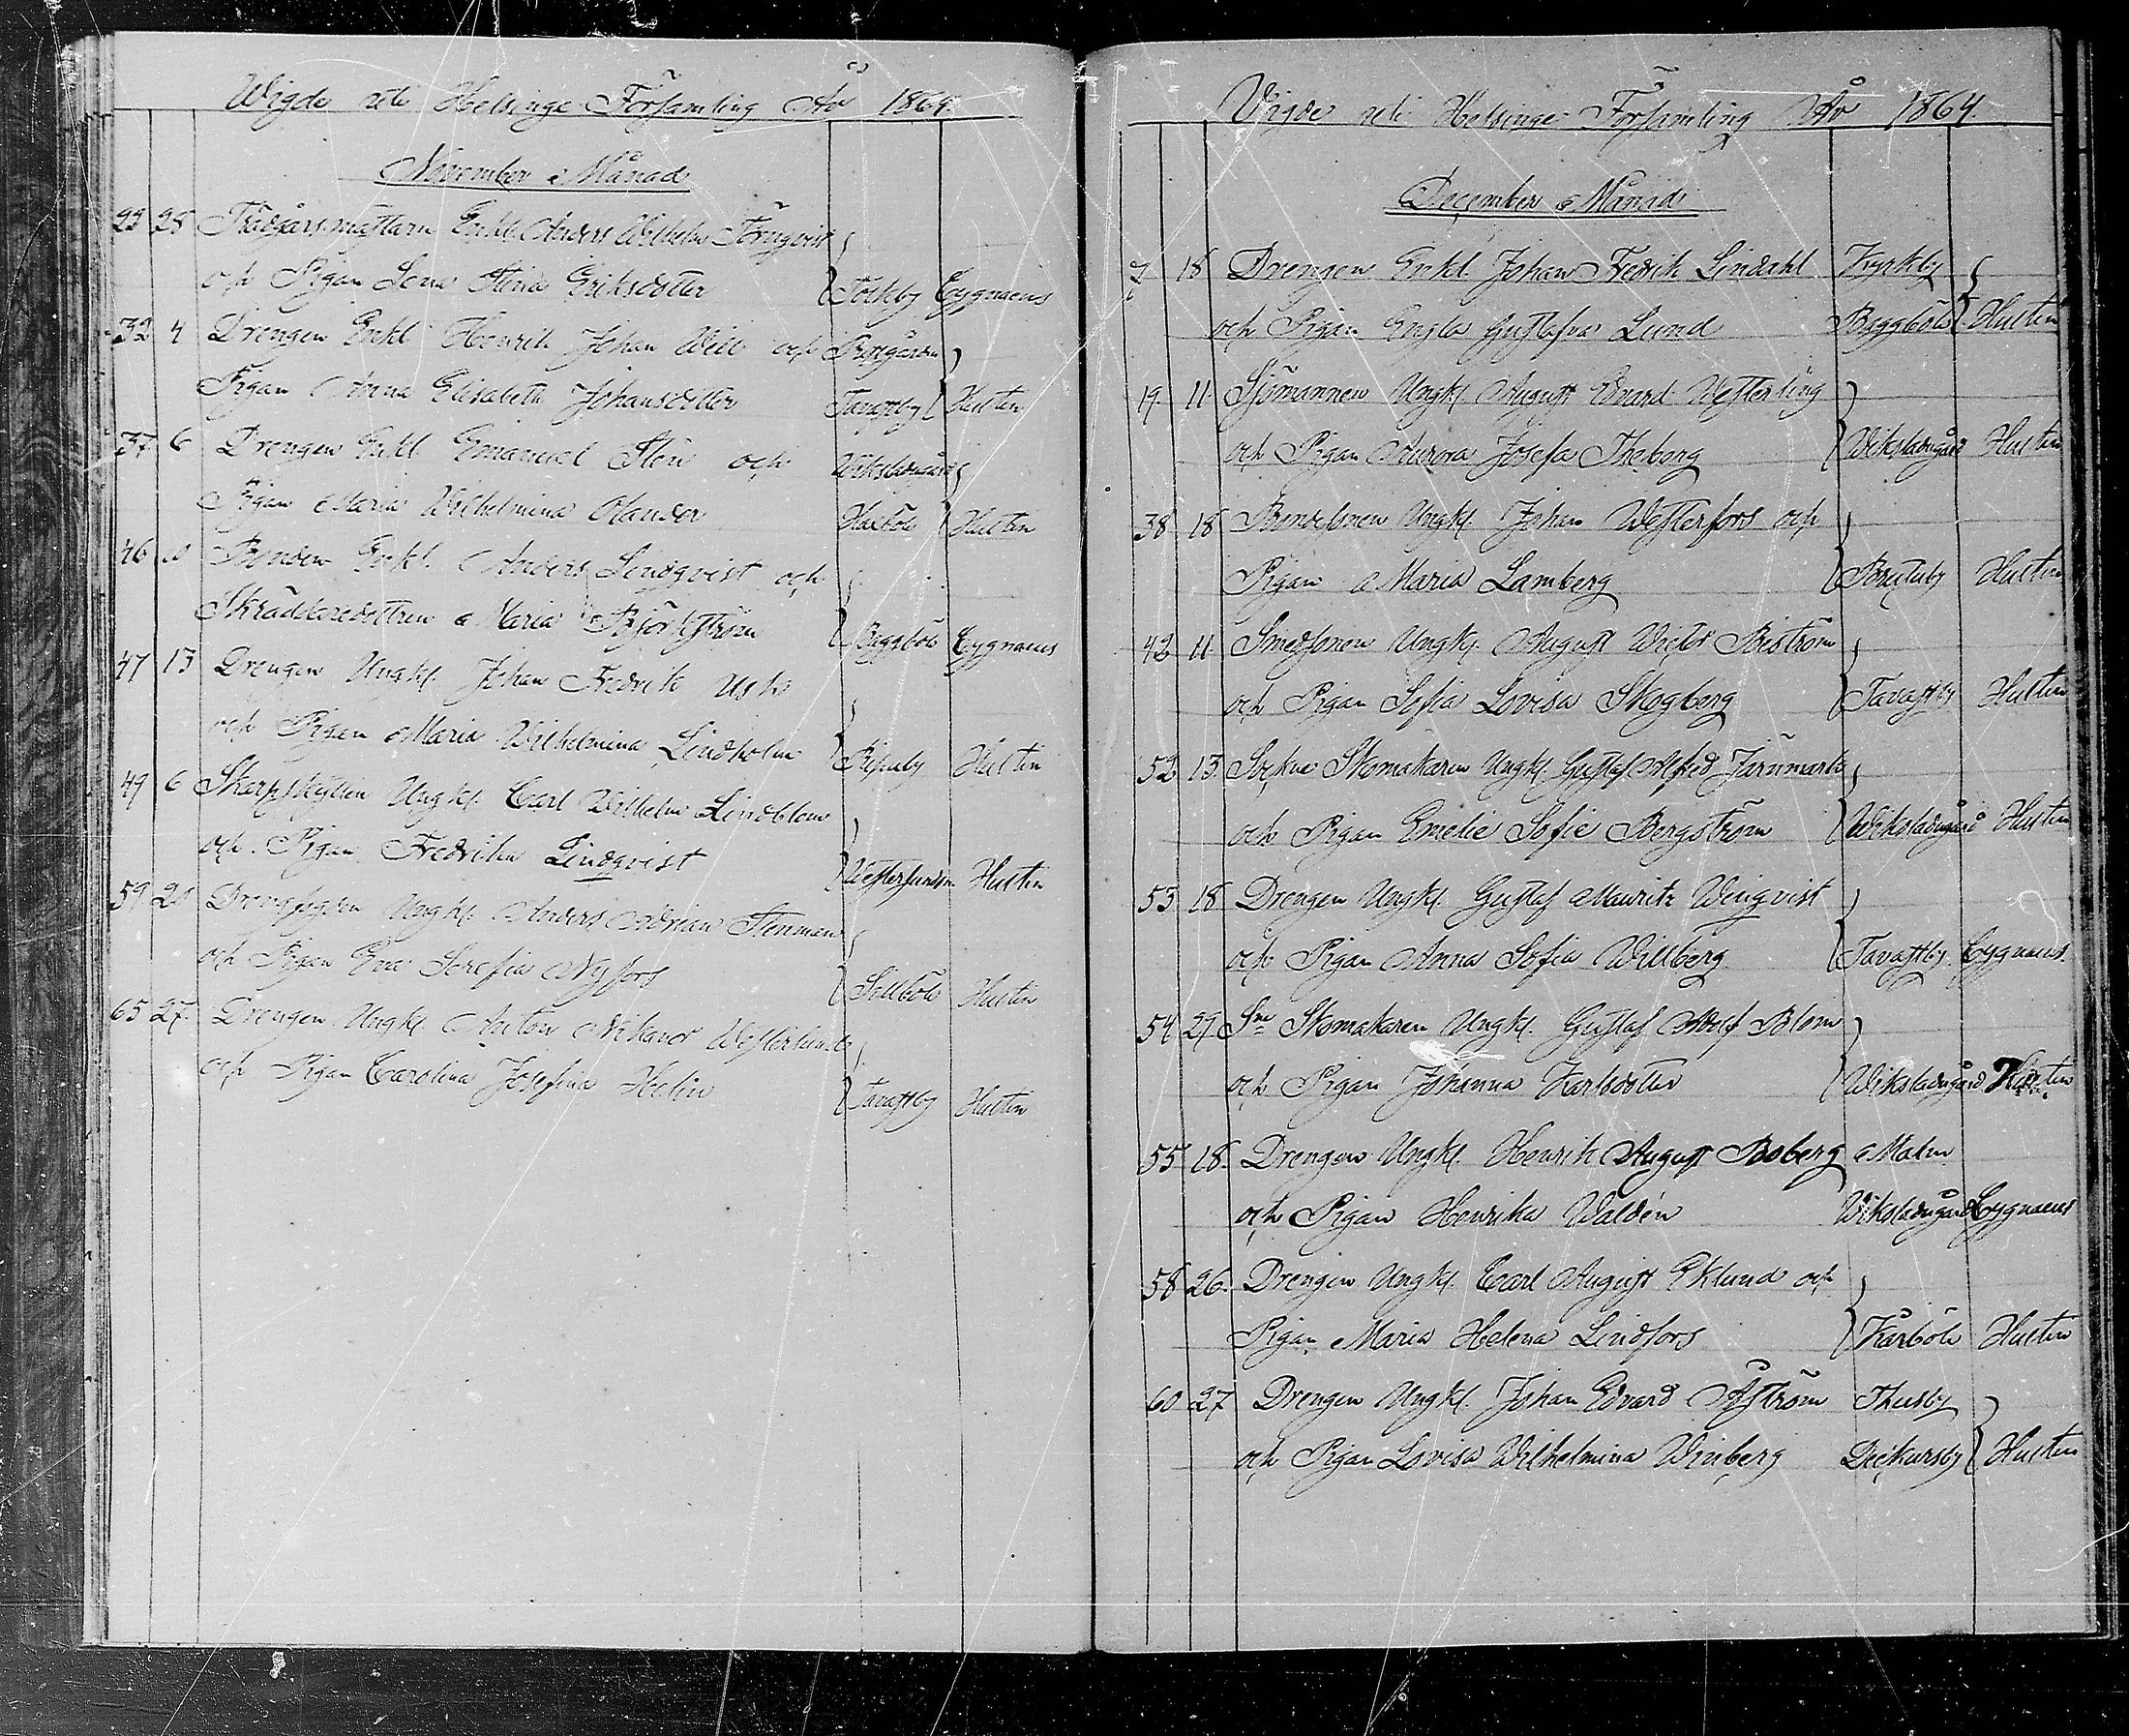 Wigde uti Helsinge Församling År 1864.
November Månad
23 28 Trädgårsmästarn Enkl. Anders Wilhelm Törnqvist
och Pigan Lena Stina Eriksdotter Toskby Cygnaeus
32 4 Drengen Enkl Henrik Johan Will och Prestgården
Pigan Anna Elisabeth Johansdotter Tavastby Hultin
37 6 Drengen Enkl Emanuel Sten och Wiksladugård
Pigan Maria Wilhelmina Olander Haxböle Hultin
46 Bonden Enkl. Anders Lindqvist och
Skräddaredottren Maria Björkström Baggböle Cygnaeus
47 13 Drengen Ungkl. Johan Fredrik Ask
och Pigan Maria Wilhelmina Lindholm Ripuby Hultin
49 6 Skarpskytten Ungkl. Carl Wilhelm Lindblom
och Pigan Fredrika Lindqvist Westersundom Hultin
59 20 Ungkl. Anders Adrian Stenman
och Pigan Eva Serefia Nyfors Sillböle Hultin
65 27. Drengen Ungkl. Anton Nikanor Westerlund
och Pigan Carolina Josefina Helin Tavastby Hultin
Vigde uti Helsinge Församling År 1864.
December Månad
7 18 Drengen Enkl. Johan Fredrik Lindahl Kyrkby
och Pigan Engla Gustafva Lund Baggböle Hultin
19 11. Sjömannen Ungkl. August Edvard Westerling
och Pigan Aurora Josefa Theberg Wiksladugård Hultin
38 18 Bondesonen Ungkl. Johan Westerfors och
Pigan Maria Lamberg Brutuby Hultin
42 11. Smedsonen Ungkl. August Victor Biström
och Pigan Sofia Lovisa Skogberg Tavastby Hultin
52 13. Sockne Skomakaren Ungkl. Gustaf Alfred Järnmark
och Pigan Emelie Sofie Bergström Wiksladugård Hultin
53 18 Drengen Ungkl. Gustaf Mauritz Winqvist
och Pigan Anna Sofia Willberg Tavastby Cygnaeus.
54 29 Sne Skomakaren Ungkl. Gustaf Adolf Blom
och Pigan Johanna Karlsdotter Wiksladugård Hultin
55 18. Drengen Ungkl. Henrik August Boberg Malm
och Pigan Henrika Waldén Wiksladugård Cygnaeus
58 26. Drengen Ungkl. Carl August Eklund och
Pigan Maria Helena Lindfors Kårböle Hultin
60 27 Drengen Ungkl. Johan Edvard Åström Thusby
och Pigan Lovisa Wilhelmina Winberg Dickursby Hultin